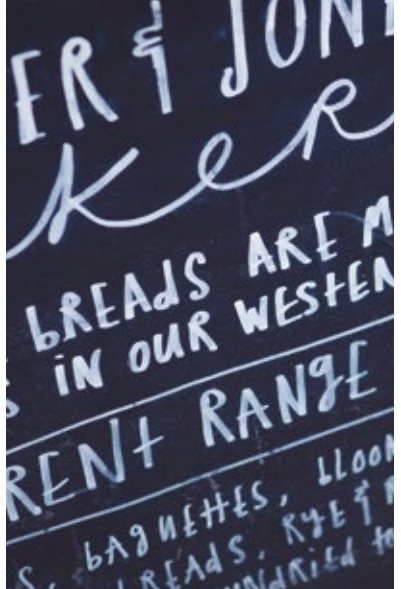 ER & JONE
KER
BREADS ARE M
S IN OUR WESTER
RENT RANGE
S, BAGUETTES, BLOOM
BREADS, RYE &
SUNDRIED TO